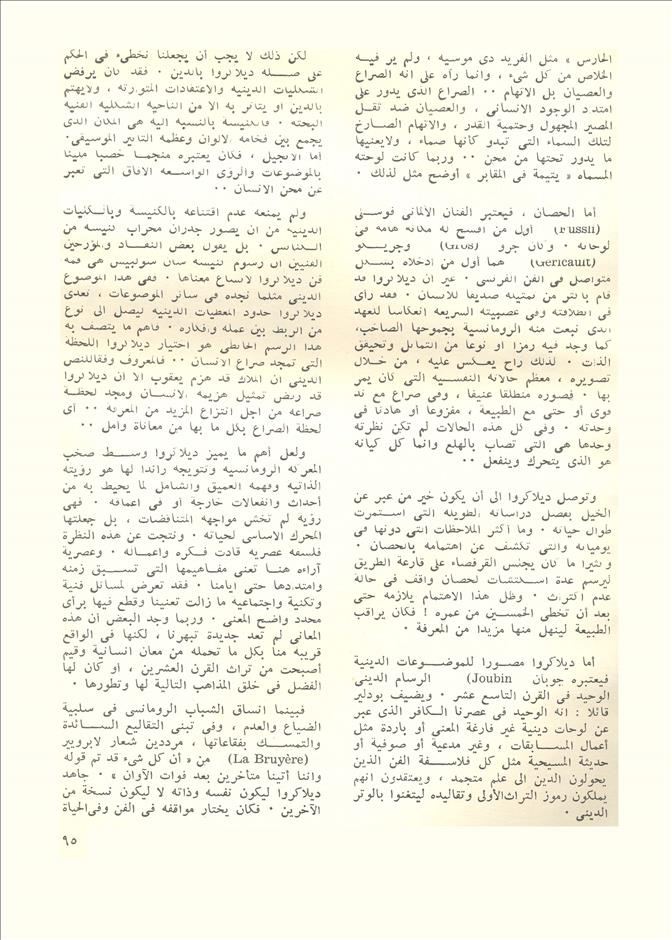 الحارس » مثل الفريد دى موسيه ، ولم ير فيه
الخلاص من كل شىء ، وانما رآه على انه الصراع
والعصيان بل الاتهام ٠٠ الصراع الذى يدور على
امتداد الوجود الانسانى ، والعصيان ضد ثقل
المصير المجهول وحتمية القدر ، والاتهام الصارخ
لتلك السماء التى تبدو كأنها صماء ، ولايعنيها
ما يدور تحتها من محن ٠٠ وربما كانت لوحته
المسماه « يتيمة فى المقابر » أوضح مثل لذلك ٠
أما الحصان ، فيعتبر الفنان الالمانى فوسلى
(Fussli) أول من افسح له مكانة هامة فى
لوحاته ٠ وكان جرو (Gros) وجريكو
(Gericault) هما أول من ادخلاه بشكل
متواصل فى الفن الفرنسى ٠ غير ان ديلاكروا قد
قام باكثر من تمثيله صديقا للانسان ٠ فقد رأى
فى انطلاقته وفى عصبيته السريعة انعكاسا للعهد
الذى نبعت منه الرومانسية بجموحها الصاخب،
كما وجد فيه رمزا أو نوعا من التماثل وتحقيق
الذات ٠ لذلك راح يعكس عليه ، من خلال
تصويره ، معظم حالاته النفسية التى كان يمر
بها ٠ فصوره منطلقا عنيفا ، وفى صراع مع ند
قوى أو حتى مع الطبيعة ، مفزوعا أو هادئا فى
وحدته ٠ وفى كل هذه الحالات لم تكن نظرته
وحدها هى التى تصاب بالهلع وانما كل كيانه
هو الذى يتحرك وينفعل ٠٠
وتوصل ديلاكروا الى أن يكون خير من عبر عن
الخيل بفضل دراساته الطويلة التى استمرت
طوال حياته ٠ وما أكثر الملاحظات التى دونها فى
يومياته والتى تكشف عن اهتمامه بالحصان ٠
وكثيرا ما كان يجلس القرفصاء على قارعة الطريق
ليرسم عدة اسكتشات لحصان واقف فى حالة
عدم اكتراث ٠ وظل هذا الاهتمام يلازمه حتى
بعد أن تخطى الخمسين من عمره ! فكان يراقب
الطبيعة لينهل منها مزيدا من المعرفة ٠
أما ديلاكروا مصورا للموضوعات الدينية
فيعتبره جوبان (Joubin) الرسام الدينى
الوحيد فى القرن التاسع عشر ٠ ويضيف بودلير
قائلا : انه الوحيد فى عصرنا الكافر الذى عبر
عن لوحات دينية غير فارغة المعنى أو باردة مثل
أعمال المسابقات ، وغير مدعية أو صوفية أو
حديثة المسيحية مثل كل فلاسفة الفن الذين
يحولون الدين الى علم متجمد ، ويعتقدون انهم
يملكون رموز التراث الأولى وتقاليده ليتغنوا بالوتر
الدينى ٠
لكن ذلك لا يجب أن يجعلنا نخطىء فى الحكم
على صلة ديلاكروا بالدين ٠ فقد كان يرفض
الشكليات الدينية والاعتقادات المتوارثة ، ولايهتم
بالدين أو يتأثر به الا من الناحية الشكلية الفنية
البحتة ٠ فالكنيسة بالنسبة اليه هى المكان الذى
يجمع بين فخامة الالوان وعظمة التأثير الموسيقى٠
أما الانجيل ، فكان يعتبره منجما خصبا مليئا
بالموضوعات والرؤى الواسعة الآفاق التى تعبر
عن محن الانسان ٠٠
ولم يمنعه عدم اقتناعه بالكنيسة وبالكليات
الدينية من ان يصور جدران محراب كنيسة من
الكنائس ٠ بل يقول بعض النقاد والمؤرخين
الفنيين ان رسوم كنيسة سان سولبيس هى قمة
فن ديلاكروا لاتساع معناها ٠ ففى هذا الموضوع
الدينى مثلما نجده فى سائر الموضوعات ، تعدى
ديلاكروا حدود المعطيات الدينية ليصل الى نوع
من الربط بين عمله وافكاره ٠ فأهم ما يتصف به
هذا الرسم الحائطى هو اختيار ديلاكروا اللحظة
التى تمجد صراع الانسان ٠٠ فالمعروف وفقاللنص
الدينى ان الملاك قد هزم يعقوب الا ان ديلاكروا
قد رفض تمثيل هزيمة الانسان ومجد لحظة
صراعه من اجل انتزاع المزيد من المعرفة ٠٠ أى
لحظة الصراع بكل ما بها من معاناة وأمل ٠٠
ولعل أهم ما يميز ديلاكروا وسط صخب
المعركة الرومانسية وتتويجه رائدا لها هو رؤيته
الذاتية وفهمه العميق والشامل لما يحيط به من
أحداث وانفعالات خارجة أو فى اعماقه ٠ فهى
رؤية لم تخش مواجهة المتناقضات ، بل جعلتها
المحرك الاساسى لحياته ٠ ونتجت عن هذه النظرة
فلسفة عصرية قادت فكره واعماله ٠ وعصرية
آراءه هنا تعنى مفاهيمها التى تسبق زمنه
وامتدادها حتى ايامنا ٠ فقد تعرض لمسائل فنية
وتكنية واجتماعية ما زالت تعنينا وقطع فيها برأى
محدد واضح المعنى ٠ وربما وجد البعض أن هذه
المعانى لم تعد جديدة تبهرنا ، لكنها فى الواقع
قريبة منا بكل ما تحمله من معان انسانية وقيم
أصبحت من تراث القرن العشرين ، أو كان لها
الفضل فى خلق المذاهب التالية لها وتطورها ٠
فبينما انساق الشباب الرومانسى فى سلبية
الضياع والعدم ، وفى تبنى التقاليع السائدة
والتمسك بفقاعاتها ، مرددين شعار لابرويير
(La Bruyère) من « أن كل شىء قد تم قوله
واننا أتينا متأخرين بعد فوات الآوان » ٠ جاهد
ديلاكروا ليكون نفسه وذاته لا ليكون نسخة من
الآخرين ٠ فكان يختار مواقفه فى الفن وفى الحياة
٩٥